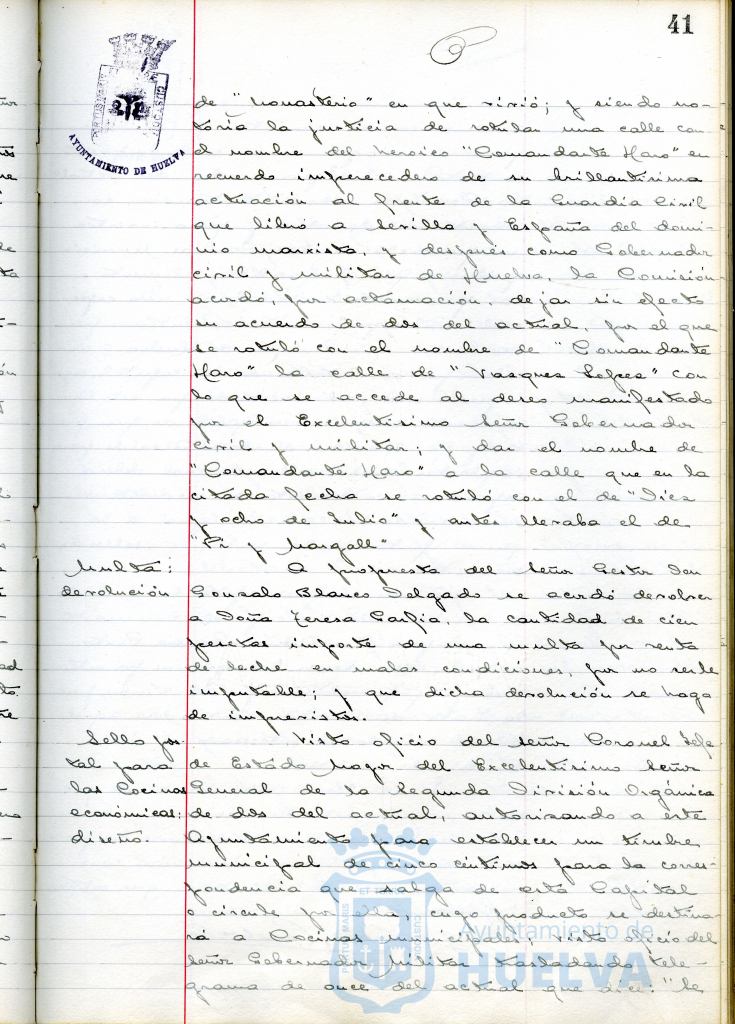 41
AYUNTAMIENTO DE HUELVA
de "Monasterio" en que vivió; y siendo no-
toria la justicia de rotular una calle con
el nombre del heroico "Comandante Haro" en
recuerdo imperecedero de su brillantísima
actuación al frente de la Guardia Civil
que libró a Sevilla y España del domi-
nio marxista, y después como Gobernador
civil y militar de Huelva, la Comisión
acordó, por aclamación, dejar sin efecto
su acuerdo de dos del actual, por el que
se rotuló con el nombre de "Comandante
Haro" la calle de "Vasques Lopes" con
lo que se accede al deseo manifestado
por el Excelentísimo Señor Gobernador
civil y militar; y dar el nombre de
"Comandante Haro" a la calle que en la
citada fecha se rotuló con el de "Dies
y ocho de Julio" y antes llevaba el de
"Pi y Margall"
Multa:
devolución
A propuesta del Señor Gestor Don
Gonsalo Blanco Delgado se acordó devolver
a Doña Teresa Garfia, la cantidad de cien
pesetas importe de una multa por venta
de leche en malas condiciones, por no serle
imputable; y que dicha devolución se haga
de imprevistos.
Sello pos-
tal para
las Cocinas
económicas:
diseño.
Visto oficio del Señor Coronel Jefe
de Estado Mayor del Excelentísimo Señor
General de la Segunda División Orgánica
de dos del actual, autorizando a este
Ayuntamiento para establecer un timbre
municipal de cinco céntimos para la corres-
pondencia que salga de esta Capital
o circule por ella, cuyo producto se destina-
rá a Cocinas municipales; visto oficio del
Señor Gobernador Militar trasladando tele-
grama de once del actual que dice: "Se
Ayuntamiento de
HUELVA